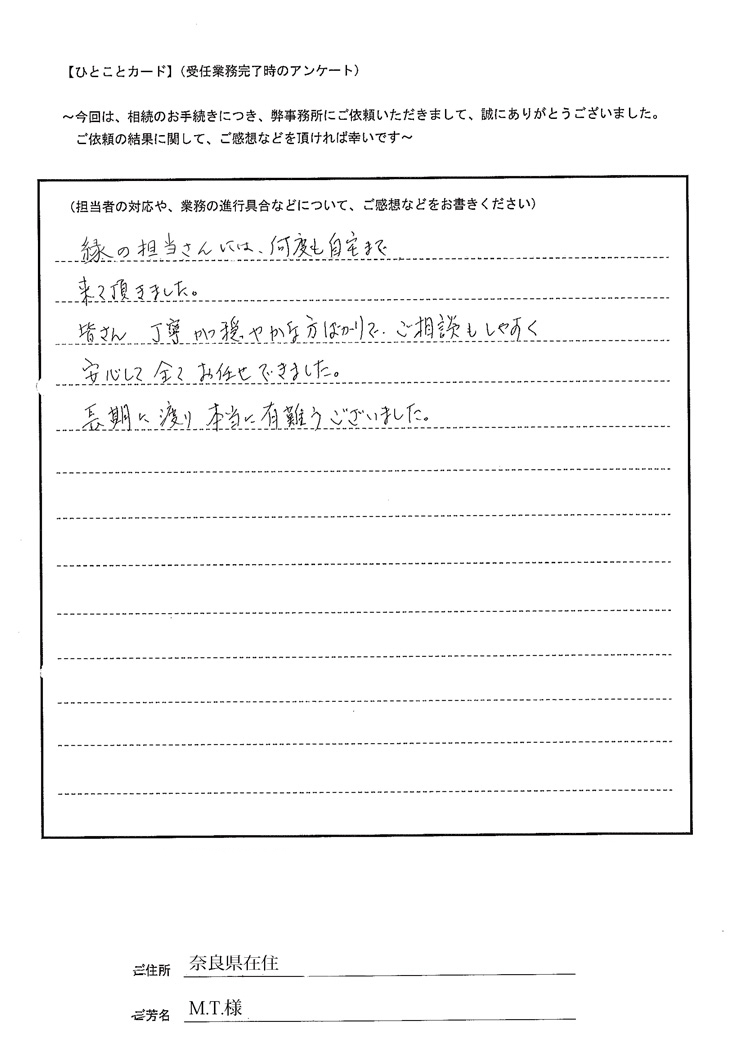 【ひとことカード】(受任業務完了時のアンケート)
～今回は、相続のお手続きにつき、弊事務所にご依頼いただきまして、誠にありがとうございました。
ご依頼の結果に関して、ご感想などを頂ければ幸いです～
(担当者の対応や、業務の進行具合などについて、ご感想などをお書きください)
縁の担当さんには、何度も自宅まで
来て頂きました。
皆さん 丁寧かつ穏やかな方ばかりで、ご相談もしやすく
安心して全てお任せできました。
長期に渡り本当に有難うございました。
ご住所 奈良県在住
ご芳名 M.T.様